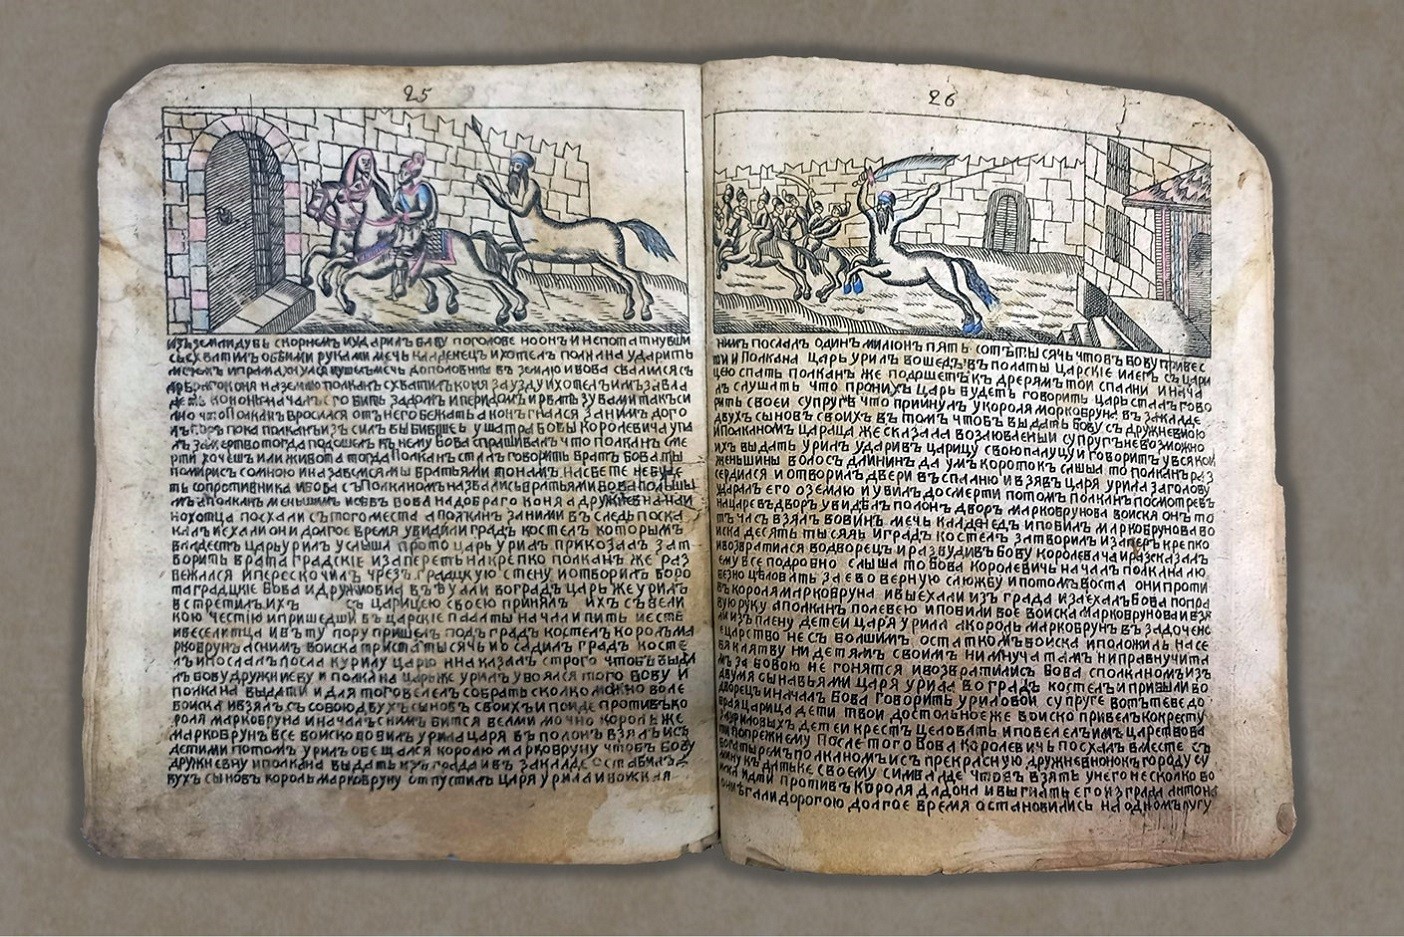 25
изъ земли дубъ скорнем и ударилъ баву поголове но онъ и непотатнувши
сь схватилъ обѣими руками мечь кладенец и хотел полкана ударить
мечь дополовины въ землю и бова свалился съ
добраго коня на землю полканъ схватилъ коня за узду и хотелъ имъ завла
деть но конь началъ его бить задомъ и передомъ и рвать зубами такъ си
лно что полканъ бросился отъ него бежать а конь гнался за нимъ до то
пока полканъ изъ силъ бы бившесь у шатра бовы королевича упа
тогда подошелъ къ нему бова спрашивалъ что полкан сме
рти хочешъ или живота тогда полканъ сталъ говорить братъ бова ты
помирись сомною и назавемся мы братьями то намъ на свете небуде
ть сопротивника и бова съ полканомъ назвались братьями бова польшы
мъ а полкан меньшимъ и селъ бова на добраго коня а дружневна на и
ноходца поехали съ того места а полкан за ними въ следъ поска
калъ и ехали они долгое время увидили градъ костел которымъ
владеетъ царь урилъ услыша про то царь урил приказалъ зат
ворить врата градские и запереть накрепко полкан же раз
бежался и перескочилъ чрезъ градцкую стену и отворилъ воро
та градцкие бова и дружневна въехали во градъ царь же урилъ
встретилъ ихъ съ царицею своею принялъ ихъ съ вели
кою честию и пришедши въ царские палаты начали пить есте
и веселитца и въ ту пору пришел подъ градъ костел король ма
рковрунъ а с ним воиска триста тысячь и осадилъ градъ косте
лъ и послалъ посла к урилу царю и наказал строго чтобъ выда
лъ бову дружневну и полкана царь же урилъ убоялся того бову и
полкана выдати и для того велел собрать сколко можно боле
воиска и взялъ съ собою двухъ сыновъ своихъ и поиде противъ ко
роля марковруна и началъ с нимъ битса велми мочно король же
марковрунъ все воиско повил урила царя въ полонъ взялъ и съ
детими потомъ урилъ обещался королю марковруну чтобъ бову
дружневну и полкана выдать изъ града и въ закладе оставилъ
вухъ сыновъ король марковруну отпустилъ царя урила и воиская
26
нимъ послалъ одинъ милионъ пять сотъ тысячь чтобъ бову привес
ти и полкана царь урил вошедъ въ полаты царские и легъ съ цари
цею спать полканъ же подшетъ къ дверямъ тои спални и нача
лъ слушать что пронихъ царь будетъ говорить царь сталъ гово
рить своеи супруге что принулъ у короля марковруна въ закладе
двухъ сыновъ своихъ въ томъ чтобъ выдать бову съ дружневною
и полканомъ царица же сказала возлюбленыи супругъ невозможно
ихъ выдать урилъ ударивъ царицу свою палицу и говоритъ у всякои
женьшины волосъ длининъ да умъ коротокъ слыша то полканъ раз
сердился и отворилъ двери въ спалню и взявъ царя урила за голову
ударилъ его о землю и убилъ до смерти потомъ полканъ посмотревъ
на царевъ дворъ увиделъ полон дворъ марковрунова воиска онъ то
тъ часъ взялъ бовинъ мечь кладенецъ и повилъ марковрунова во
иска десять тысячь и градъ костелъ затворилъ и заперъ крепко
и возвратился во дворецъ и разбудивъ бову королевича и разсказалъ
ему все подробно слыша то бова королевичь началъ полкана лю
безно целовать за ево верную служву и потомъ воста они проти
въ короля марковруна и выехали изъ града и заехалъ бова по пра
вую руку а полканъ по левею и повили все воиска марковрунова и взя
ли изъ плену детеи царя урила а король марковрунъ въ задонское
царство несъ волшимъ остаткомъ воиска и положилъ на се
бя клятву ни детямъ своимъ ни внучатамъ ни правнучита
мъ за бовою не гонятся и возвратились бова сполканомъ изъ
двумя сыновьями царя урила во градъ костелъ и пришли во
дворецъ и началъ бова говорить уриловои супруге вотъ тебе до
брая царица дети твои достольное же воиско привелъ ко кресту
а уриловых детеи крестъ целовать и повелелъ имъ царствова
ти попрежнему после того бова королевичь поехалъ вместе съ
богатыремъ полканомъ и съ прекрасную дружневною къ городу су
мину къ датьке своему симвалде чтовъ взять унего несколко во
иска и ати противъ короля дадона и выгнать его изъ града антона
они бгали дорогою долгое время остановились на одномъ лугу